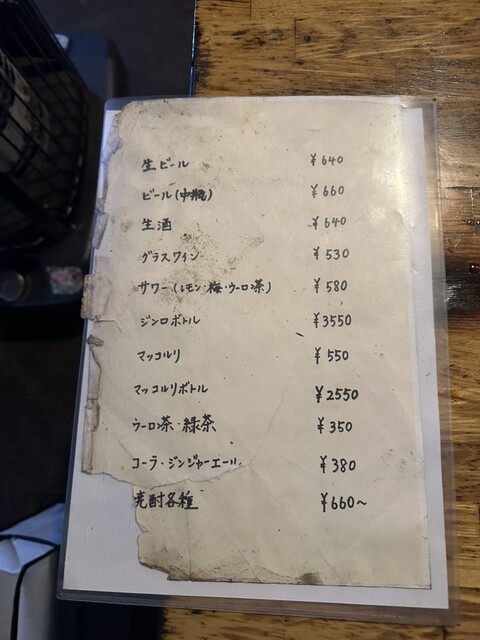 生ビール ¥640
ビール(中瓶) ¥660
生酒 ¥640
グラスワイン ¥530
サワー(レモン・梅・ウーロン茶) ¥580
ジンロボトル ¥3550
マッコルリ ¥550
マッコルリボトル ¥2550
ウーロン茶・緑茶 ¥350
コーラ・ジンジャーエール ¥380
焼酎各種 ¥660〜